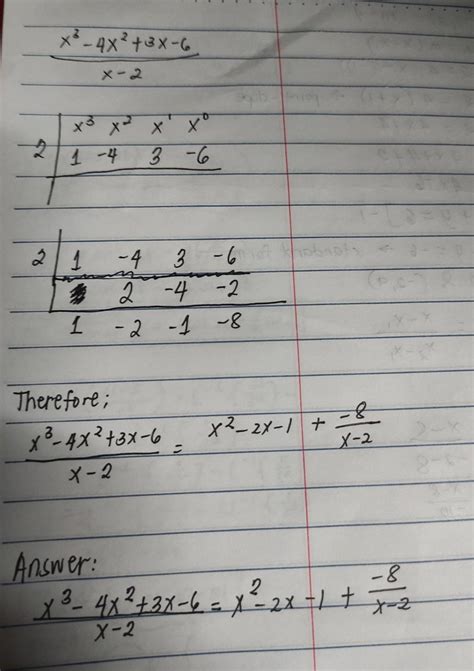 x³-4x²+3x-6
x-2
x³ x² x¹ x⁰
2 1 -4 3 -6
2 1 -4 3 -6
2 -4 -2
1 -2 -1 -8
Therefore;
x³-4x²+3x-6 = x²-2x-1 + -8
x-2 x-2
Answer:
x³-4x²+3x-6 = x²-2x-1 + -8
x-2 x-2